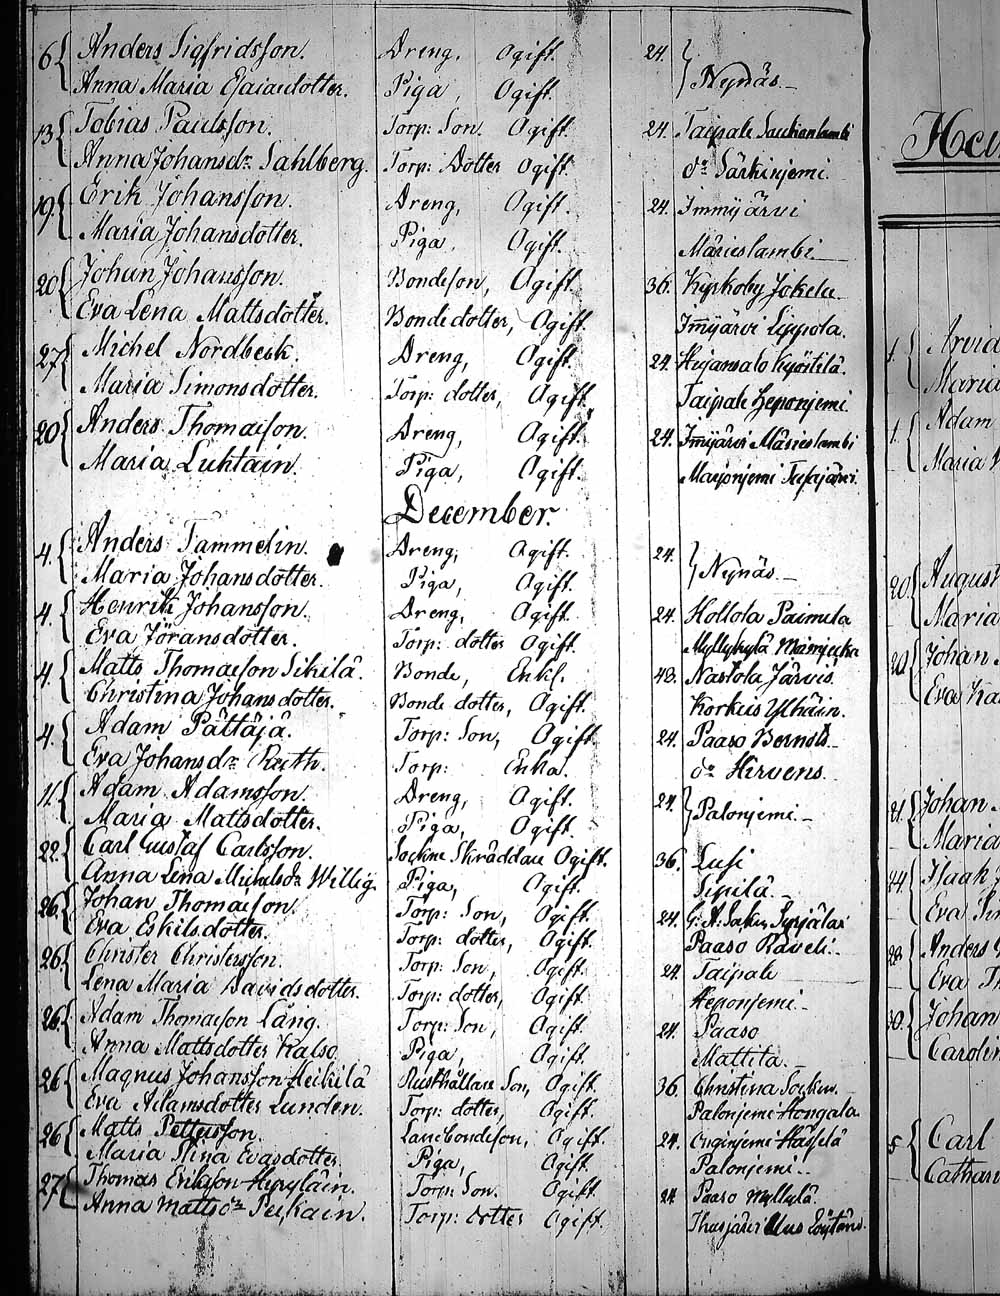 6 { Anders Sigfridsson. Dreng, Ogift. 24. }
Anna Maria Esaiædotter. Piga, Ogift. } Nynäs.
13 { Tobias Paulsson. Torp: Son. Ogift. 24. Taipale
Anna Johansdr Sahlberg. Torp: Dotter Ogift. do Särkinjemi.
19. { Erik Johansson. Dreng, Ogift. 24. Immjärvi
Maria Johansdotter. Piga. Ogift. Märieslambi.
20 { Johan Johansson. Bondeson, Ogift. 36. Kyrkoby Jokela.
Eva Lena Mattsdotter. Bondedotter, Ogift. Immjärvi Seppola.
27 { Michel Nordbeck. Dreng, Ogift. 24. Hujansalo Kyöstilä.
Maria Simonsdotter. Torp: dotter, Ogift. Taipale Heponjemi.
20 { Anders Thomasson. Dreng, Ogift. 24. Immjärvi Märieslambi
Maria Luhtain. Piga, Ogift. Marjonjemi
December.
4. { Anders Tammelin. Dreng, Ogift. 24. }
Maria Johansdotter. Piga, Ogift. } Nynäs.
4. { Henrik Johansson. Dreng, Ogift. 24. Hollola Paimela
Eva Jöransdotter. Torp: dotter Ogift. Myllykylä
4. { Matts Thomasson Sikilä. Bonde, Enkl. 43. Nastola Järvis.
Christina Johansdotter. Bonde dotter, Ogift. Korkeis Ylhäin.
4. { Adam Pättäjä. Torp: Son, Ogift. 24. Paaso Bernots
Eva Johansdr Ruth. Torp: Enka. do Hirvens.
11. { Adam Adamsson. Dreng, Ogift. 24. }
Maria Mattsdotter. Piga, Ogift. } Palonjemi.
22. { Carl Gustaf Carlsson. Sockne Skräddare Ogift. 36. Lusi
Anna Lena Michelsdr Willig. Piga, Ogift. Sepilä
26. { Johan Thomasson. Torp: Son, Ogift. 24.
Eva Eskilsdotter. Torp: dotter, Ogift. Paaso Raveli.
26. { Christer Christersson. Torp: Son, Ogift. 24. Taipale
Lena Maria Davidsdotter. Torp: dotter, Ogift. Heponjemi.
26 { Adam Thomasson Lång. Torp: Son, Ogift. 24. Paaso
Anna Mattsdotter Kalso. Piga, Ogift. Mattila.
26 { Magnus Johansson Heikilä Rusthållare Son, Ogift. 36. Christina Socken.
Eva Adamsdotter Lunden. Torp: dotter, Ogift. Palonjemi Hongala
26 { Matts Pettersson. Lanbondeson, Ogift. 24.
Maria Stina Evasdotter. Piga, Ogift. Palonjemi.
27 { Thomas Eriksson Torp: Son. Ogift. 24. Paaso Myllylä.
Anna Mattsdr Torp: dotter Ogift. Uus
1. { Arvid
Maria
1. { Adam
Maria
20 { August
Maria
Johan
Eva
21 { Johan
Maria
Isaak
Eva
28 { Anders
Eva
30 { Johan
Carolin
5 { Carl
Cathar